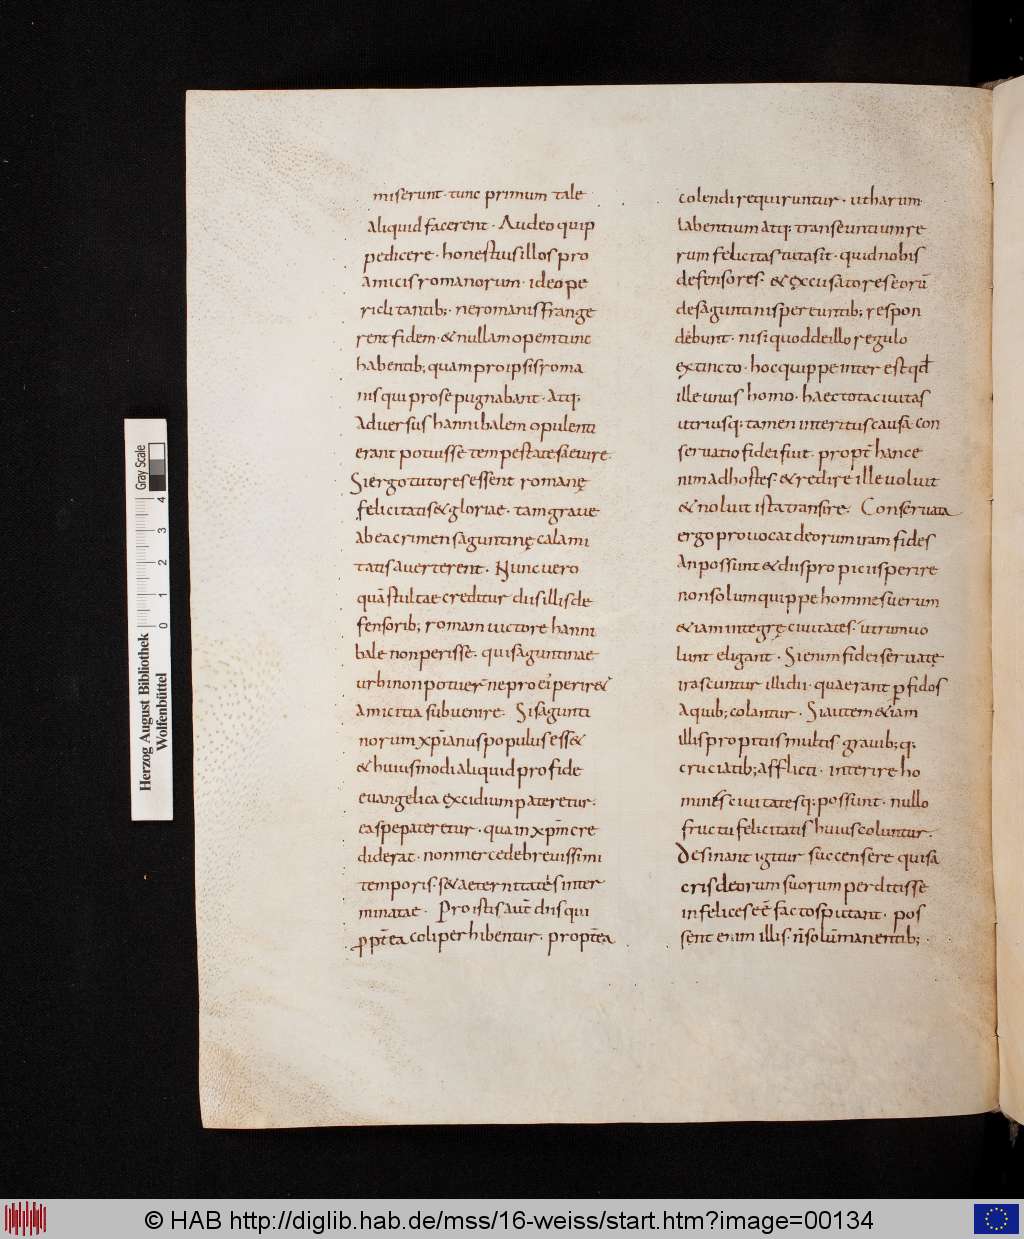 miserunt · tunc primum tale
aliquid facerent · Audeo quip
pe dicere · honestius illos pro
amicis romanorum · ideo pe
riclitantib; · ne romanis frange
rent fidem · & nullam opem tunc
habentib; quam pro ipsis roma
nis qui pro se pugnabant · atq;
adversus hannibalem opulenti
erant potuisse tempestate saeuire ·
Si ergo tutores essent romanę
felicitatis & gloriae · tam graue
ab ea crimen saguntinę calami
tatis auerterent · Nunc uero
quā stultae creditur diis illis de
fensorib; romam uictore hanni
bale non perisse · qui saguntinae
urbi non potuer̄ ne pro ei' perir&
amicitia subuenire · Si sagunti
norum xp̄ianus populus ess&
& huiusmodi aliquid pro fide
euangelica excidium pateretur ·
ea spe pateretur · qua in xp̄m cre
diderat · non mercede breuissimi
temporis · s& aeternitatis inter
minatae · Pro istis aut̄ diis qui
ꝓpt̄ea coli perhibentur · propt̄ea
colendi requiruntur · ut harum
labentium atq; transeuntium re
rum felicitas tuta sit · quid nobis
defensores · & excusatores eorū
de saguntinis pereuntib; respon
debunt · nisi quod de illo regulo
extincto · hoc quippe interest qd̄
ille unus homo · haec tota ciuitas
utriusq; tamen interitus causa con
seruatio fidei fuit · propt̄ hanc e
nim ad hostes & redire ille uoluit
& noluit ista transire · Conseruata
ergo prouocat deorum iram fides
An possunt & diis propitiis perire
non solum quippe homines uerum
&iam integrę ciuitates · utrum uo
lunt eligant · Si enim fidei seruatę
irascuntur illi dii · quaerant ꝑfidos
a quib; colantur · Si autem &iam
illis propitiis multis grauib; q;
cruciatib; afflicti · interire ho
mines ciuitatesq; possunt · nullo
fructu felicitatis huius coluntur ·
Desinant igitur succensere qui sa
cris deorum suorum perditis se
infelices eē factos putant · pos
sent enim illis · n̄ solū manentib; ·
Herzog August Bibliothek
Wolfenbüttel
Gray Scale
0 1 2 3 4
© HAB http://diglib.hab.de/mss/16-weiss/start.htm?image=00134